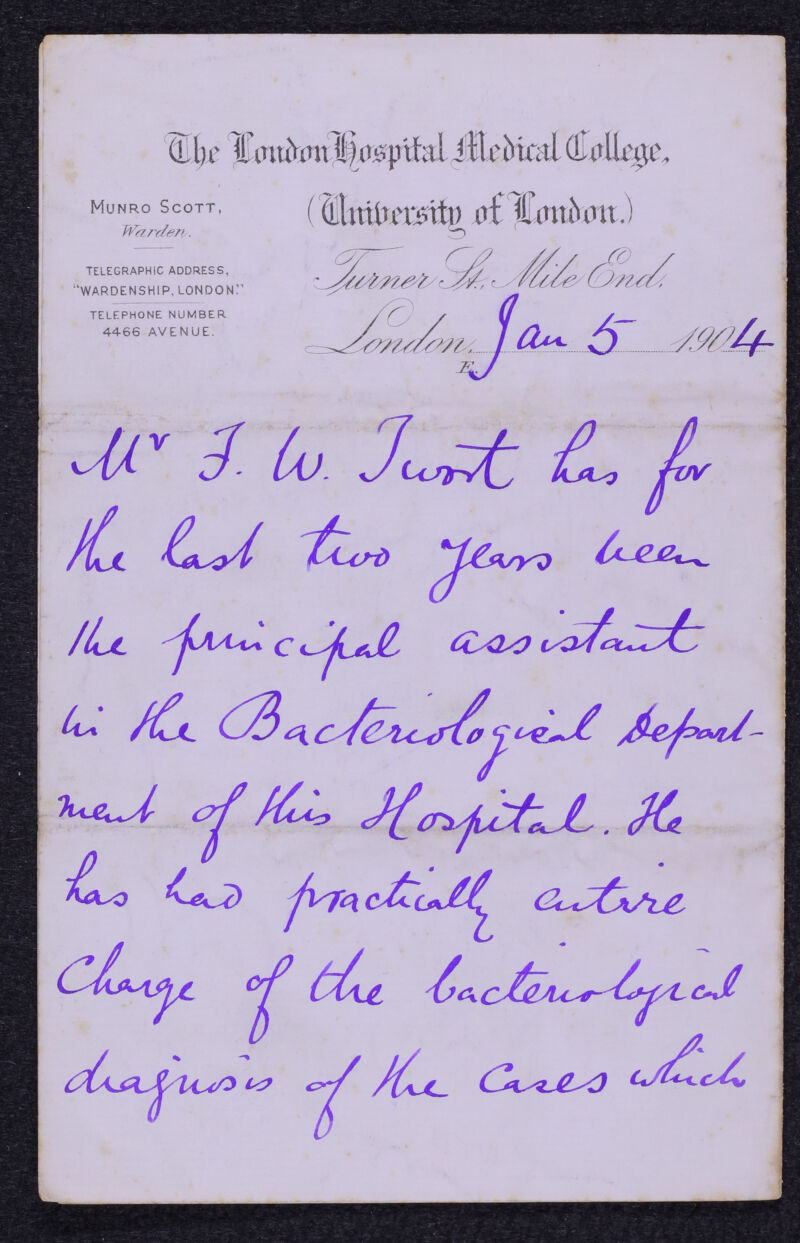 The London Hospital Medical College,
(University of London.)
MUNRO SCOTT,
Warden.
TELEGRAPHIC ADDRESS,
"WARDENSHIP, LONDON."
TELEPHONE NUMBER
4466 AVENUE.
Turner St. Mile End.
London, Jan 5 1904
E.
Mr F. W. Twort has for
the last two years been
the principal assistant
in the Bacteriological Depart-
ment of this Hospital. He
has had practically entire
Charge of the bacteriological
diagnosis of the Cases which